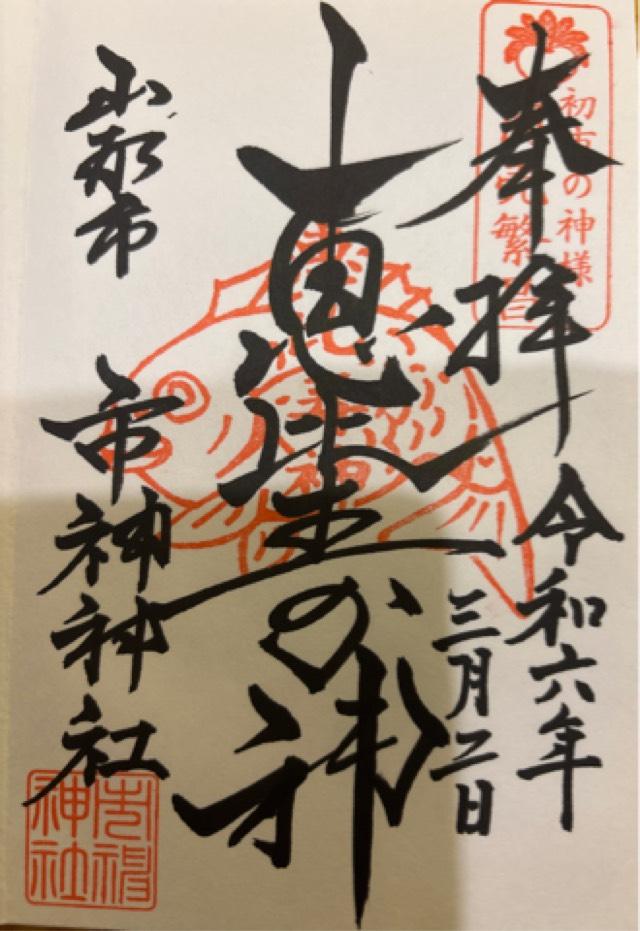 初市の神様
奉拝
令和六年
三月二日
恵比寿の神
山形市
市神神社
市神
神社